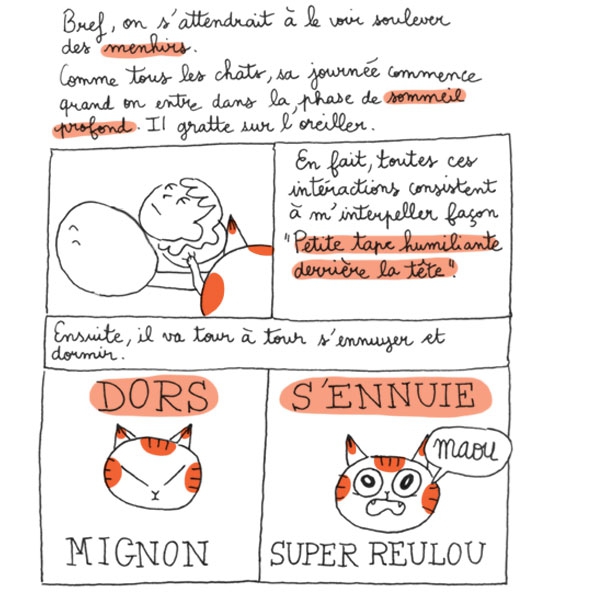 Bref, on s'attendrait à le voir soulever
des menhirs.
Comme tous les chats, sa journée commence
quand on entre dans la phase de sommeil
profond. Il gratte sur l'oreiller.
En fait, toutes ces
intéractions consistent
à m'interpeller façon
"Petite tape humiliante
derrière la tête".
Ensuite, il va tour à tour s'ennuyer et
dormir.
DORS
MIGNON
S'ENNUIE
maou
SUPER REULOU